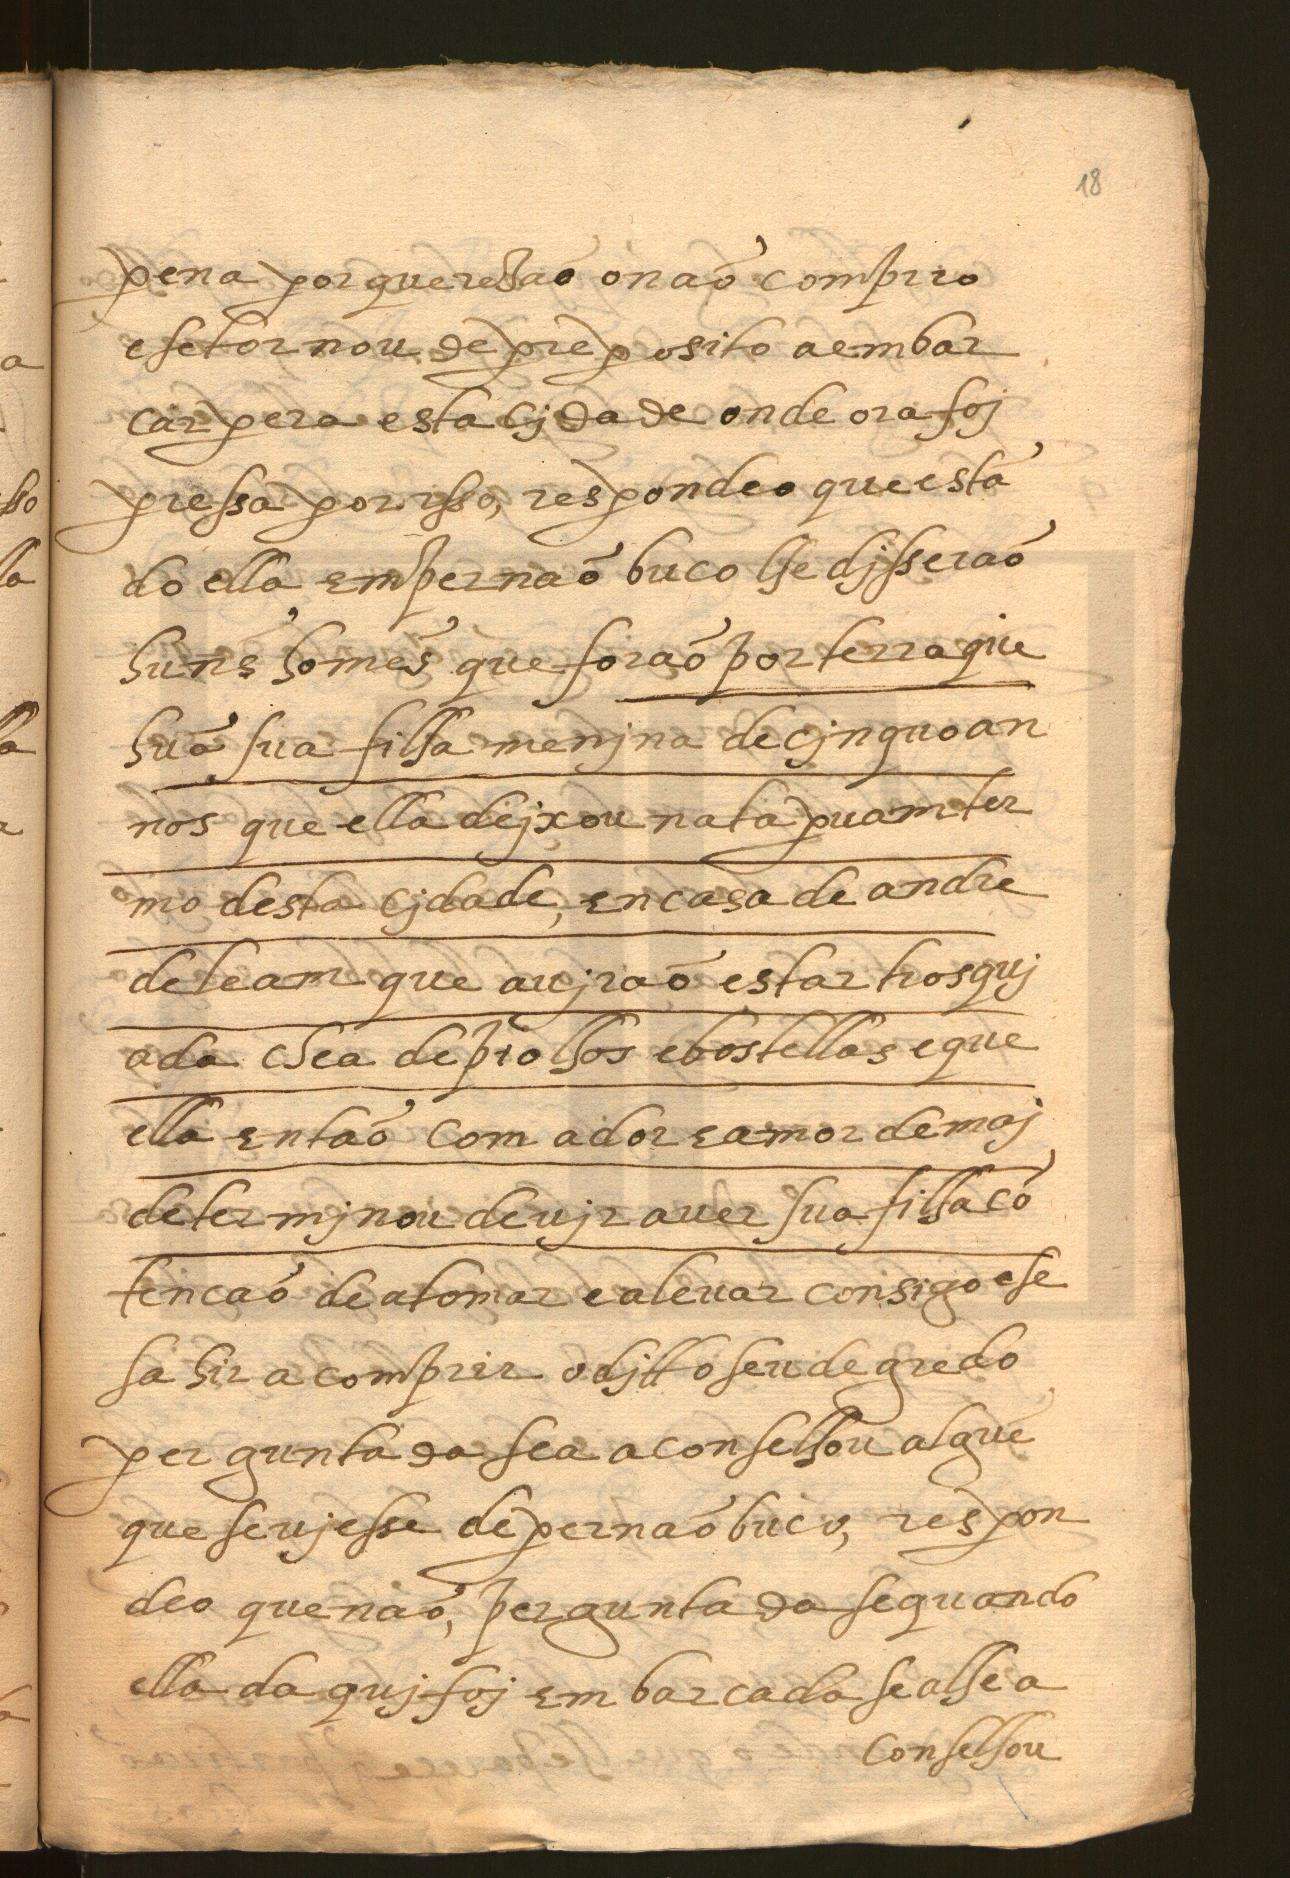 18
pena por que rezaõ o naõ comprio
e se tornou de preposito a embar
car pera esta cjdade onde ora foj
pressa por isso, respondeo que está
do ella em pernaõbuco lhe djsseraõ
huns homẽs que foraõ por terra que
huã sua filha menjna de cjnquo an
nos que ella dejxou na tapuam ter
mo desta cjdade, en casa de andre
de leam que a vjraõ estar trosquj
ada chea de piolhos e bostellas e que
ella entaõ com a dor e amor de maj
determjnou de vjr a ver sua filha cõ
tencaõ de a tomar e a levar consigo e se
sahir a comprir o djtto seu degredo
perguntada se a aconselhou alguẽ
que se vjesse de pernaõbuco, respon
deo que naõ, perguntada se quando
ella daquj foj embarcada se a lhe a
conselhou